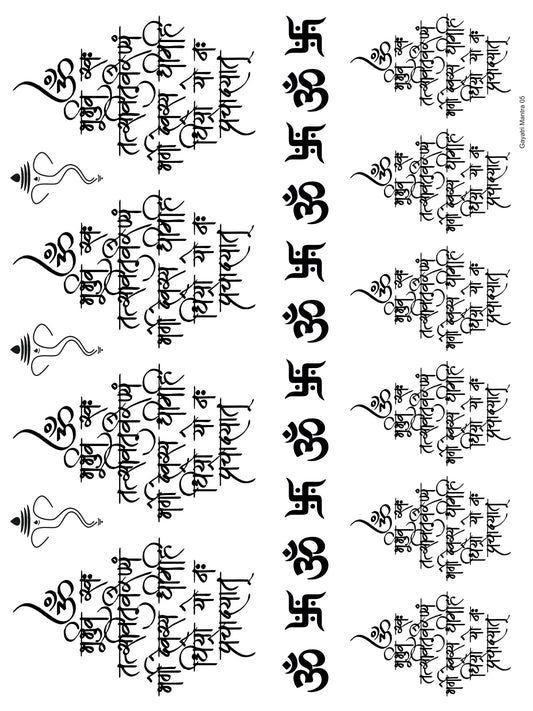 ॐ
भूर्भुवः स्वः
तत्सवितुर्वरेण्यं
भर्गो देवस्य धीमहि
धियो यो नः
प्रचोदयात्
ॐ
भूर्भुवः स्वः
तत्सवितुर्वरेण्यं
भर्गो देवस्य धीमहि
धियो यो नः
प्रचोदयात्
ॐ
भूर्भुवः स्वः
तत्सवितुर्वरेण्यं
भर्गो देवस्य धीमहि
धियो यो नः
प्रचोदयात्
ॐ
भूर्भुवः स्वः
तत्सवितुर्वरेण्यं
भर्गो देवस्य धीमहि
धियो यो नः
प्रचोदयात्
ॐ 卐 ॐ 卐 ॐ 卐 ॐ 卐 ॐ 卐 ॐ 卐
ॐ
भूर्भुवः स्वः
तत्सवितुर्वरेण्यं
भर्गो देवस्य धीमहि
धियो यो नः
प्रचोदयात्
ॐ
भूर्भुवः स्वः
तत्सवितुर्वरेण्यं
भर्गो देवस्य धीमहि
धियो यो नः
प्रचोदयात्
ॐ
भूर्भुवः स्वः
तत्सवितुर्वरेण्यं
भर्गो देवस्य धीमहि
धियो यो नः
प्रचोदयात्
ॐ
भूर्भुवः स्वः
तत्सवितुर्वरेण्यं
भर्गो देवस्य धीमहि
धियो यो नः
प्रचोदयात्
ॐ
भूर्भुवः स्वः
तत्सवितुर्वरेण्यं
भर्गो देवस्य धीमहि
धियो यो नः
प्रचोदयात्
ॐ
भूर्भुवः स्वः
तत्सवितुर्वरेण्यं
भर्गो देवस्य धीमहि
धियो यो नः
प्रचोदयात्
Gayatri Mantra 05